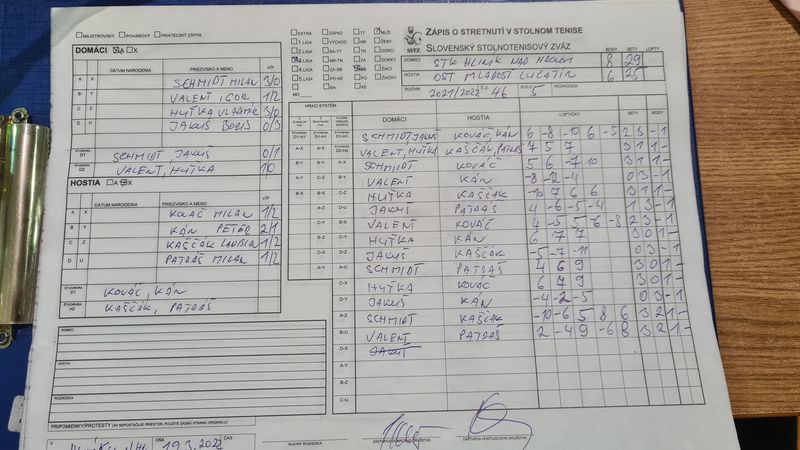 MAJSTROVSKÝ POHÁROVÝ PRIATEĽSKÝ ZÁPAS
DOMÁCI A X
DÁTUM NARODENIA PRIEZVISKO A MENO V/P
A X SCHMIDT MILAN 3/0
B Y VALENT IGOR 1/2
C Z HUŤKA VLADIMÍR 3/0
D U JAKUŠ BORIS 0/3
ŠTVORHRA D1 SCHMIDT, JAKUŠ 0/1
D2 VALENT, HUŤKA 1/0
HOSTIA A X
DÁTUM NARODENIA PRIEZVISKO A MENO V/P
A X KOVÁČ MILAN 1/2
B Y KÁN PETER 2/1
C Z KAŠČÁK LADISLAV 1/2
D U PATRÁŠ MILAN 1/2
ŠTVORHRA D1 KOVÁČ, KÁN
ŠTVORHRA D2 KAŠČÁK, PATRÁŠ
DOMÁCI
HOSTIA
ROZHODCA
PRIPOMIENKY/PROTESTY (AK NEPOSTAČUJE PRIESTOR, POUŽITE ZADNÚ STRANU ORIGINÁLU)
V DŇA 19.3.2022 ČAS
EXTRA ZÁPAD TT MUŽI
1.LIGA VÝCHOD NR ŽENY
2.LIGA BA-TT TN DORCI
3.LIGA NR-TN ZA DORKY
4.LIGA ZA-BB BB ŽIACI
5.LIGA PO-KE PO ŽIAČKY
MO BA KE
SSTZ
ZÁPIS O STRETNUTÍ V STOLNOM TENISE
SLOVENSKÝ STOLNOTENISOVÝ ZVÄZ
BODY SETY LOPTY
DOMÁCI STK HLINÍK NAD HRONOM 8 29
HOSTIA OŠT MLADOSŤ LUČATÍN 6 25
ROČNÍK 2021/2022 Č.Z. 46 KOLO 5 ROZHODCA
HRACÍ SYSTÉM DOMÁCI HOSTIA LOPTIČKY SETY BODY
SCHMIDT JAKUŠ KOVÁČ, KÁN 6 -8 -10 6 -5 2 3 - 1
A-X A-X VALENT, HUŤKA KAŠČÁK, PATRÁŠ 7 5 7 3 1 1 -
B-Y B-Y A-X SCHMIDT KOVÁČ 5 6 -7 10 3 1 1 -
A-Y C-Z B-Y VALENT KÁN -8 -2 -4 0 3 - 1
B-X B-X C-Z HUŤKA KAŠČÁK -10 7 6 6 3 1 1 -
A-Z D-U JAKUŠ PATRÁŠ 4 -6 -5 -4 1 3 - 1
C-Y B-X VALENT KOVÁČ 4 -5 5 -6 -8 2 3 - 1
B-Z C-Y HUŤKA KÁN 6 7 7 3 0 1 -
C-X D-Z JAKUŠ KAŠČÁK -5 -7 -11 0 3 - 1
A-Y A-U SCHMIDT PATRÁŠ 4 6 9 3 0 1 -
C-X HUŤKA KOVÁČ 6 7 9 3 0 1 -
D-Y JAKUŠ KÁN -4 -2 -5 0 3 - 1
A-Z SCHMIDT KAŠČÁK -10 -6 5 8 6 3 2 1 -
B-U VALENT PATRÁŠ 2 -4 9 -6 8 3 2 1 -
D-X JAKUŠ
A-Y
B-Z
C-U
HLAVNÝ ROZHODCA ZÁSTUPCA DOMÁCEHO DRUŽSTVA ZÁSTUPCA HOSŤUJÚCEHO DRUŽSTVA